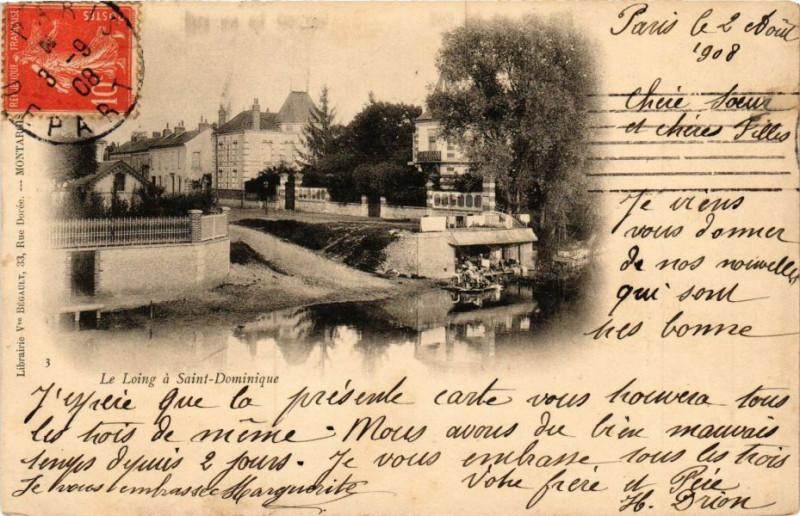 Paris le 2 Août
1908
Chère Soeur
et chères Filles
Je viens
vous donner
de nos nouvelles
qui sont
très bonne
J'espère que la présente carte vous trouvera tous
les trois de même. Nous avons du bien mauvais
temps depuis 2 jours. Je vous embrasse tous les trois
Votre frère et Père
H. Drion
Je vous embrasse Marguerite
Le Loing à Saint-Dominique
3
Librairie Vve BÉGAULT, 33, Rue Dorée. — MONTARGIS
RÉPUBLIQUE FRANÇAISE
POSTES
10
PARIS
8 - 9
08
DEPART